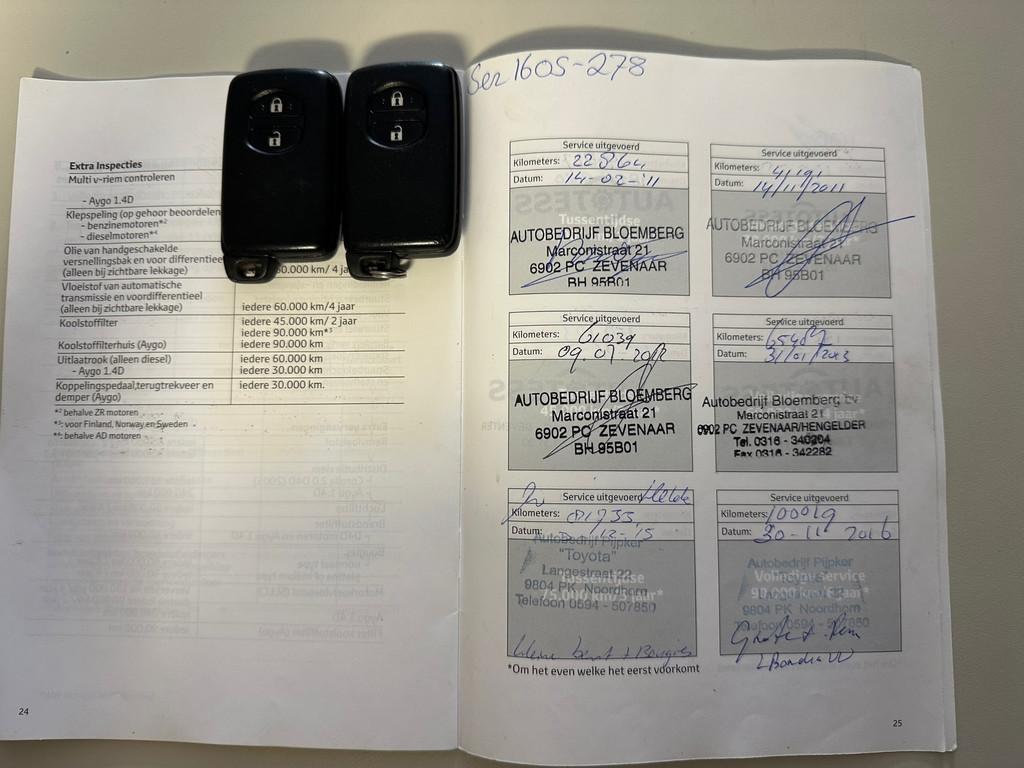 Ser 160S-278
Extra Inspecties
Multi v-riem controleren
- Aygo 1.4D
Klepspeling (op gehoor beoordelen
- benzinemotoren*²
- dieselmotoren*⁴
Olie van handgeschakelde
versnellingsbak en voor differentieel
(alleen bij zichtbare lekkage)
km/ 4
Vloeistof van automatische
transmissie en voordifferentieel
(alleen bij zichtbare lekkage)
iedere 60.000 km/4 jaar
Koolstoffilter
iedere 45.000 km/ 2 jaar
iedere 90.000 km*³
Koolstoffilterhuis (Aygo)
iedere 90.000 km
Uitlaatrook (alleen diesel)
iedere 60.000 km
- Aygo 1.4D
iedere 30.000 km
Koppelingspedaal,terugtrekveer en
demper (Aygo)
iedere 30.000 km.
*² behalve ZR motoren
*³: voor Finland, Norway en Sweden
*⁴: behalve AD motoren
24
Service uitgevoerd
Kilometers: 22864
Datum: 14-02-'11
Tussentijdse
AUTOBEDRIJF BLOEMBERG
Marconistraat 21
6902 PC ZEVENAAR
BH 95B01
Service uitgevoerd
Kilometers:
Datum: 14/11/2011
AUTOBEDRIJF BLOEMBERG
Marconistraat 21
6902 PC ZEVENAAR
BH 95B01
Service uitgevoerd
Kilometers: 61039
Datum: 09.07-2012
AUTOBEDRIJF BLOEMBERG
Marconistraat 21
6902 PC ZEVENAAR
BH 95B01
Service uitgevoerd
Kilometers:
Datum: 31/01/2013
Autobedrijf Bloemberg bv
Marconistraat 21
6902 PC ZEVENAAR/HENGELDER
Tel. 0316 - 340204
Fax 0316 - 342282
Service uitgevoerd
Kilometers: 81733
Datum: 12-15
Autobedrijf Pijpker
"Toyota"
Langestraat
9804 PK Noordhorn
Telefoon 0594 - 507850
Tussentijdse
75.000 km/5 jaar*
kleine beurt + Bougies
Service uitgevoerd
Kilometers: 100019
Datum: 30-11 2016
Autobedrijf Pijpker
Volledige service
90.000 km/6 jaar*
9804 PK Noordhorn
Telefoon 0594 - 507850
*Om het even welke het eerst voorkomt
25